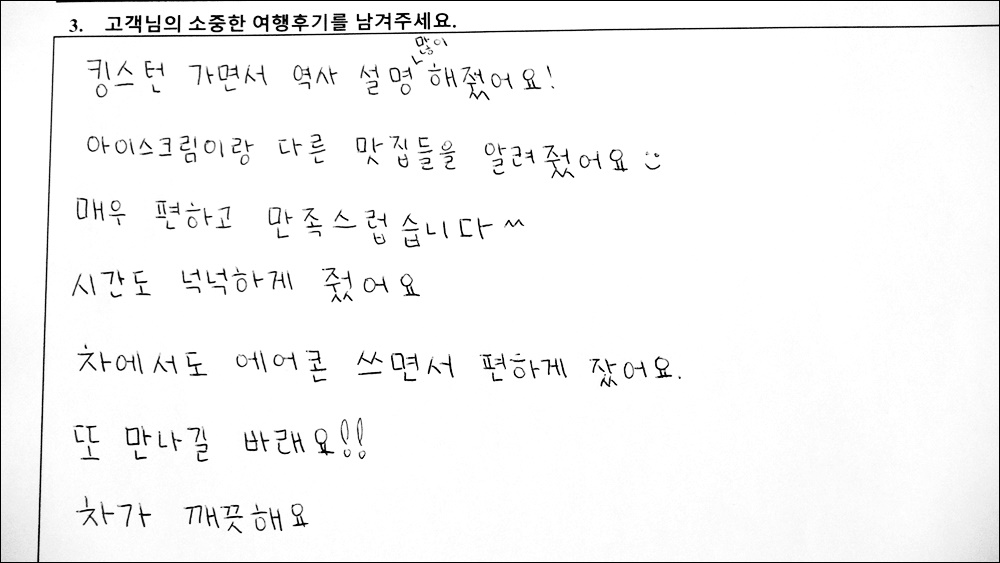 3. 고객님의 소중한 여행후기를 남겨주세요.
킹스턴 가면서 역사 설명 많이 해줬어요!
아이스크림이랑 다른 맛집들을 알려줬어요
매우 편하고 만족스럽습니다 ^^
시간도 넉넉하게 줬어요
차에서도 에어콘 쓰면서 편하게 잤어요.
또 만나길 바래요!!
차가 깨끗해요